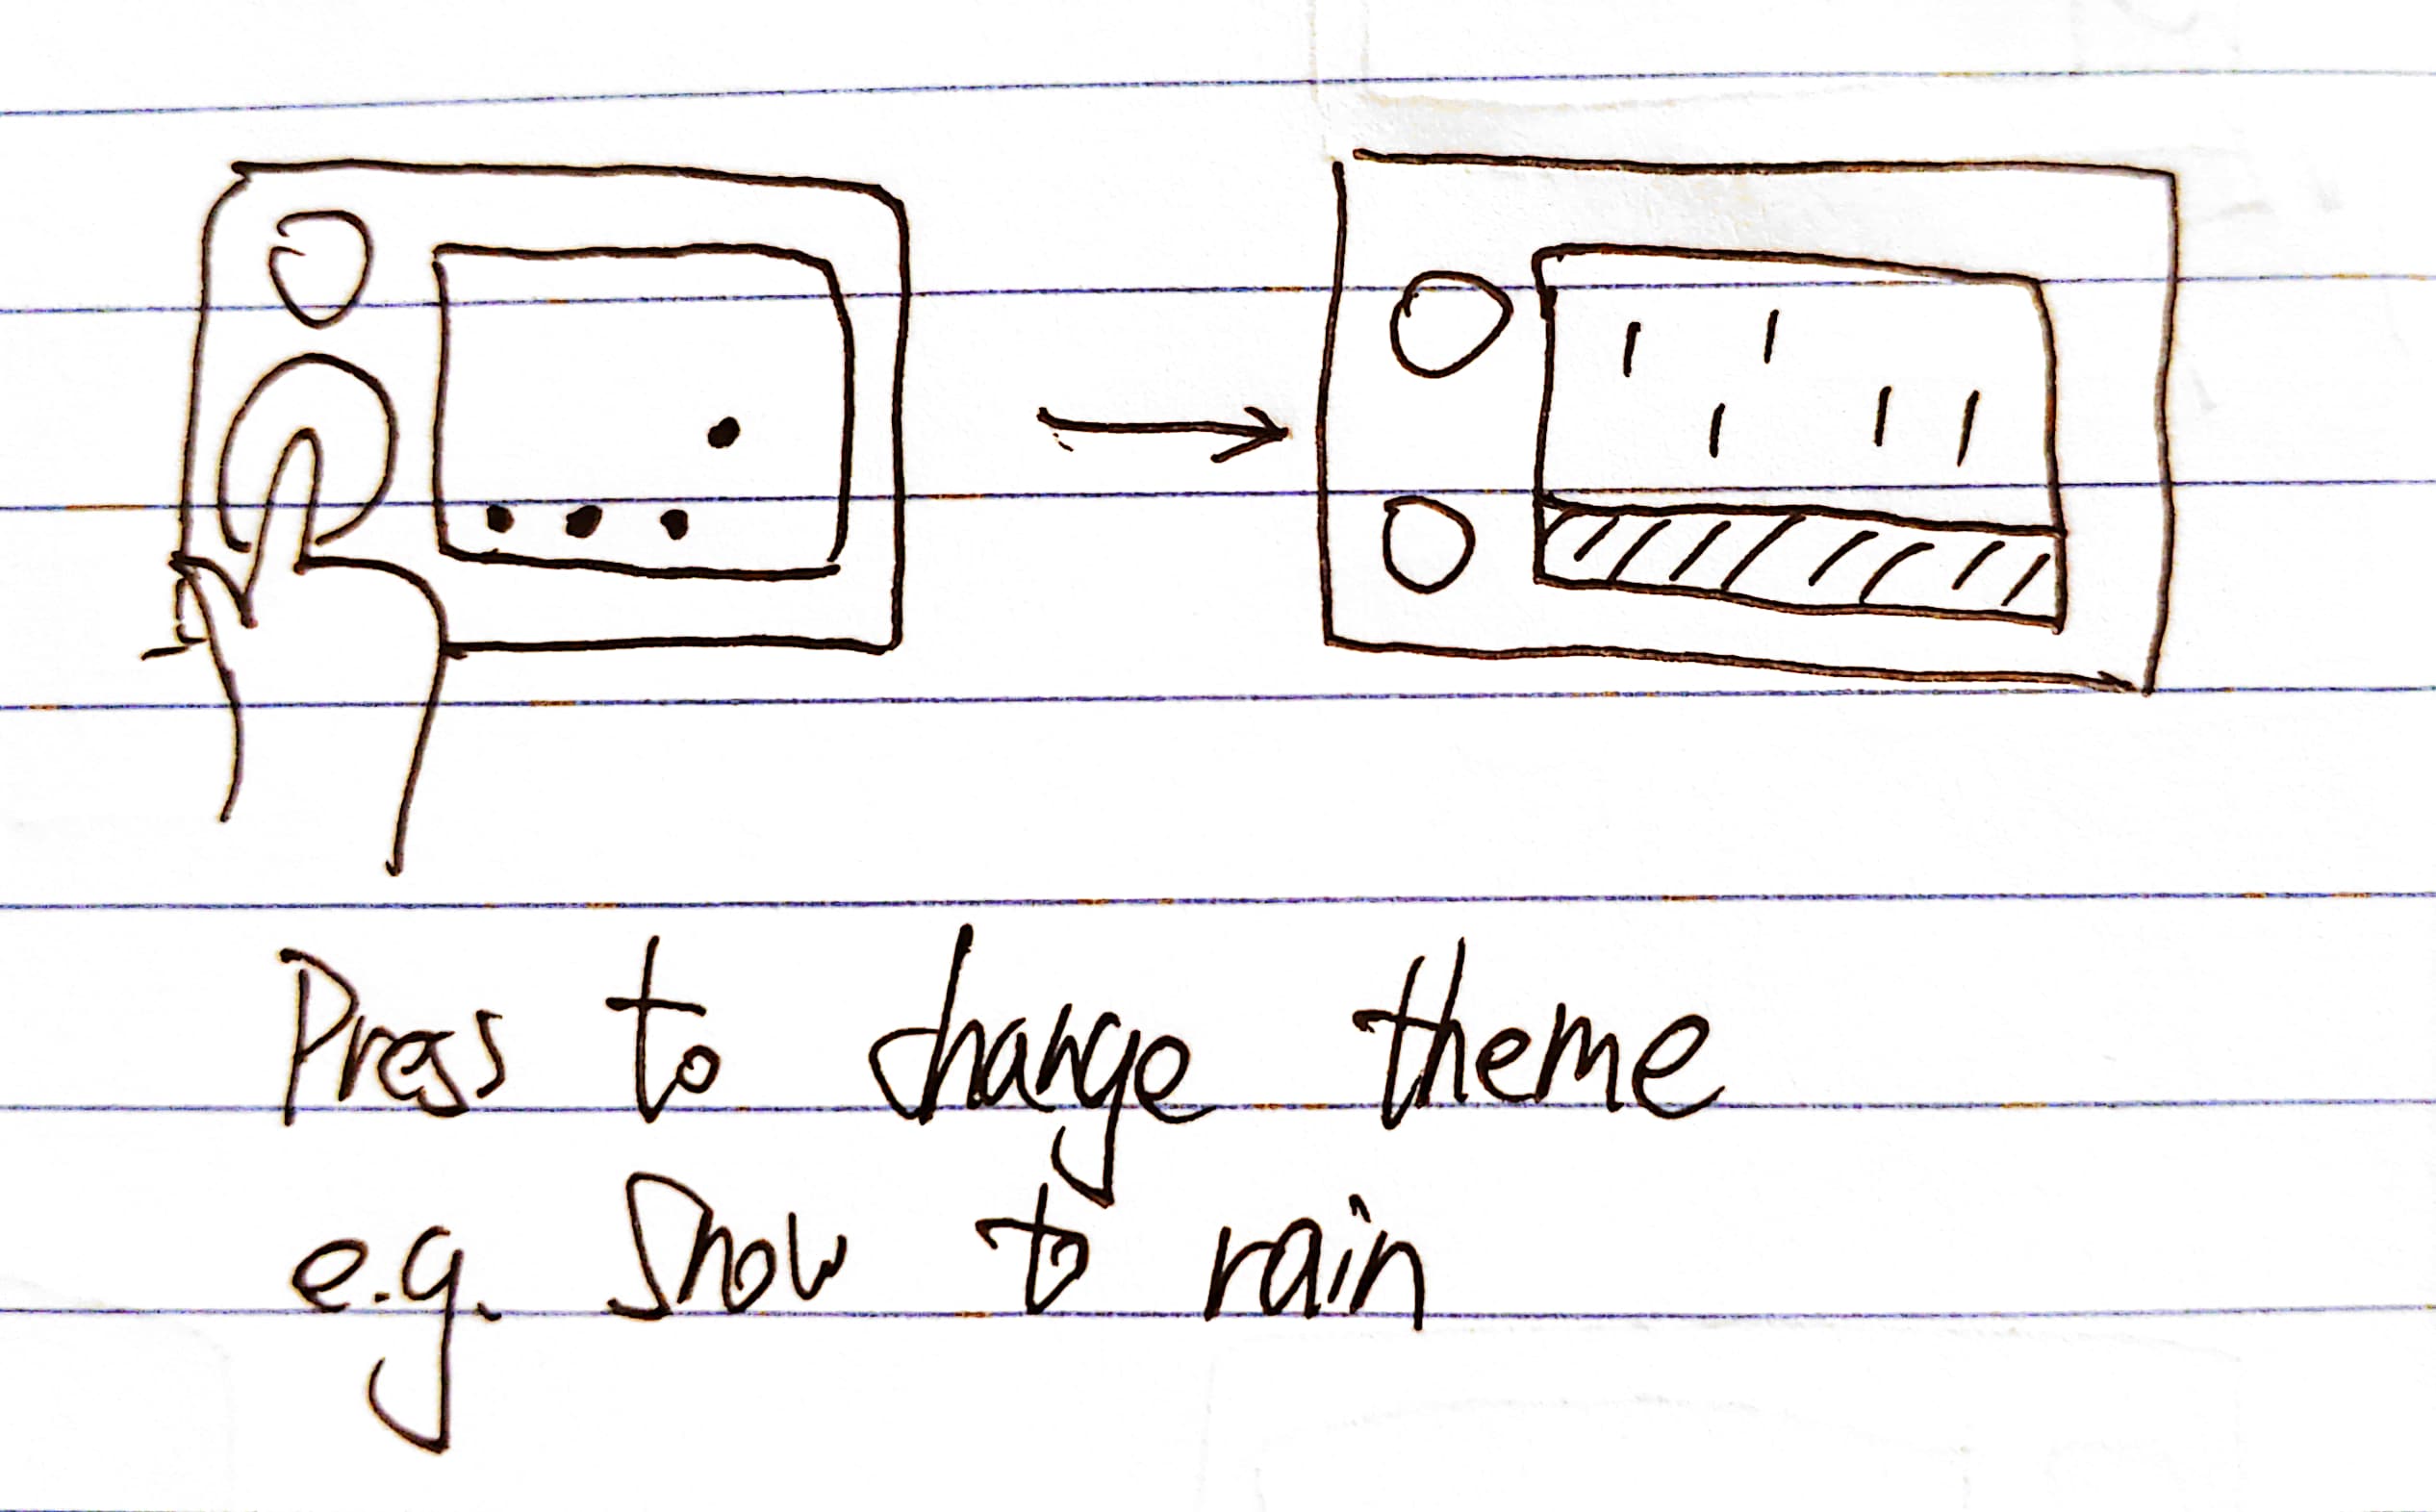 Press to change theme
e.g. Snow to rain